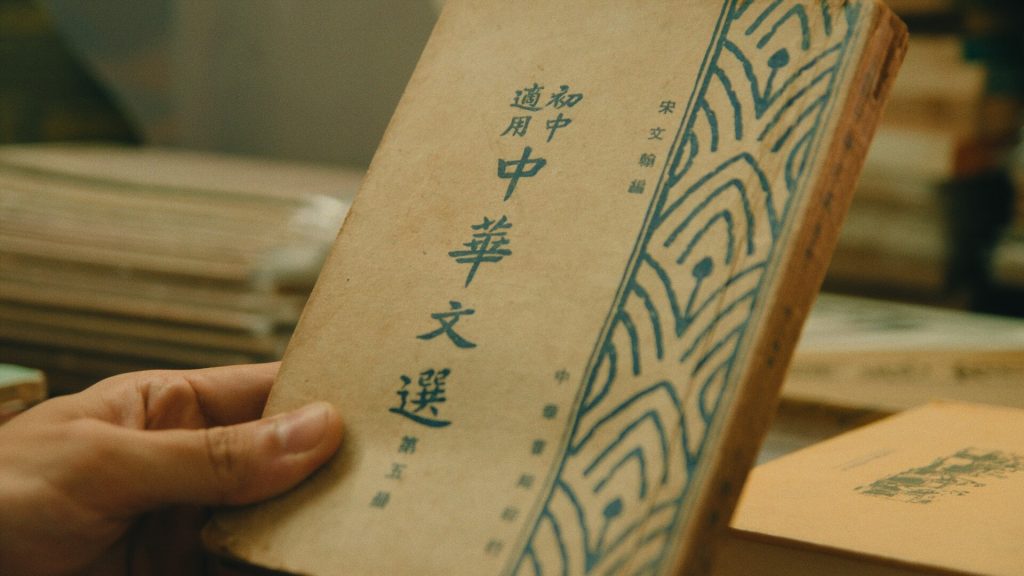 宋文翰編
中華書局
初中
適用
中華文選
第五冊